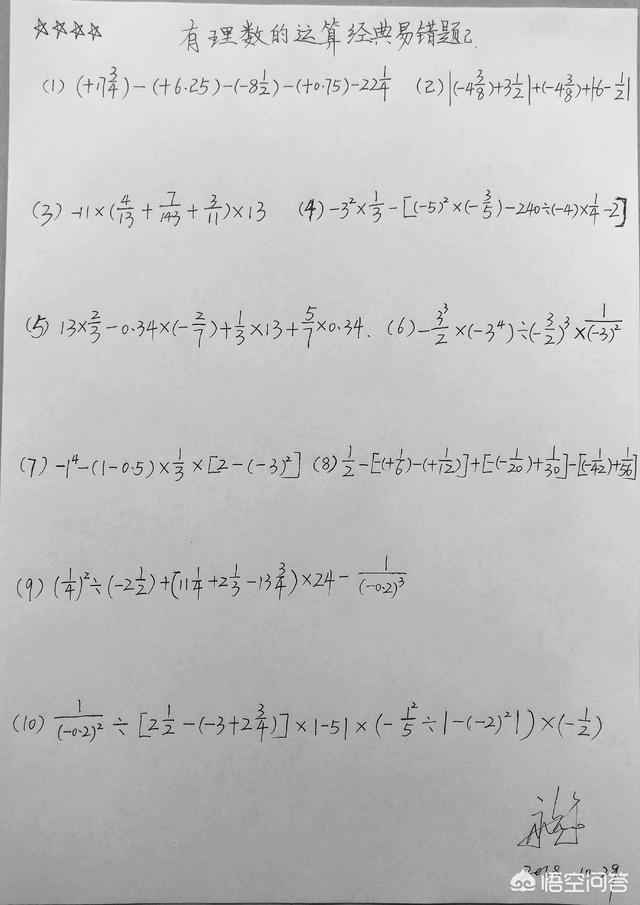 ☆☆☆☆ 有理数的运算经典易错题2.
(1) (+17 3/4)-(+6.25)-(-8 1/2)-(+0.75)-22 1/4 (2) |(-4 3/8)+3 1/2|+(-4 3/8)+|6-1/2|
(3) -11×(4/13+7/143+3/11)×13 (4) -3²×1/3-[(-5)²×(-3/5)-240÷(-4)×1/4-2]
(5) 13×2/3-0.34×(-2/7)+1/3×13+5/7×0.34. (6) -3³/2×(-3⁴)÷(-3/2)³×1/(-3)²
(7) -1⁴-(1-0.5)×1/3×[2-(-3)²] (8) 1/2-[(+1/6)-(+1/12)]+[-(-1/20)+1/30]-[(-1/42)+1/56]
(9) (1/4)²÷(-2 1/2)+(11 1/4+2 1/3-13 3/4)×24-1/(-0.2)³
(10) 1/(-0.2)²÷[2 1/2-(-3+2 3/4)]×|-5|×(-1²/5÷|-(-2)²|)×(-1/2)
2018.10.29
悟空问答